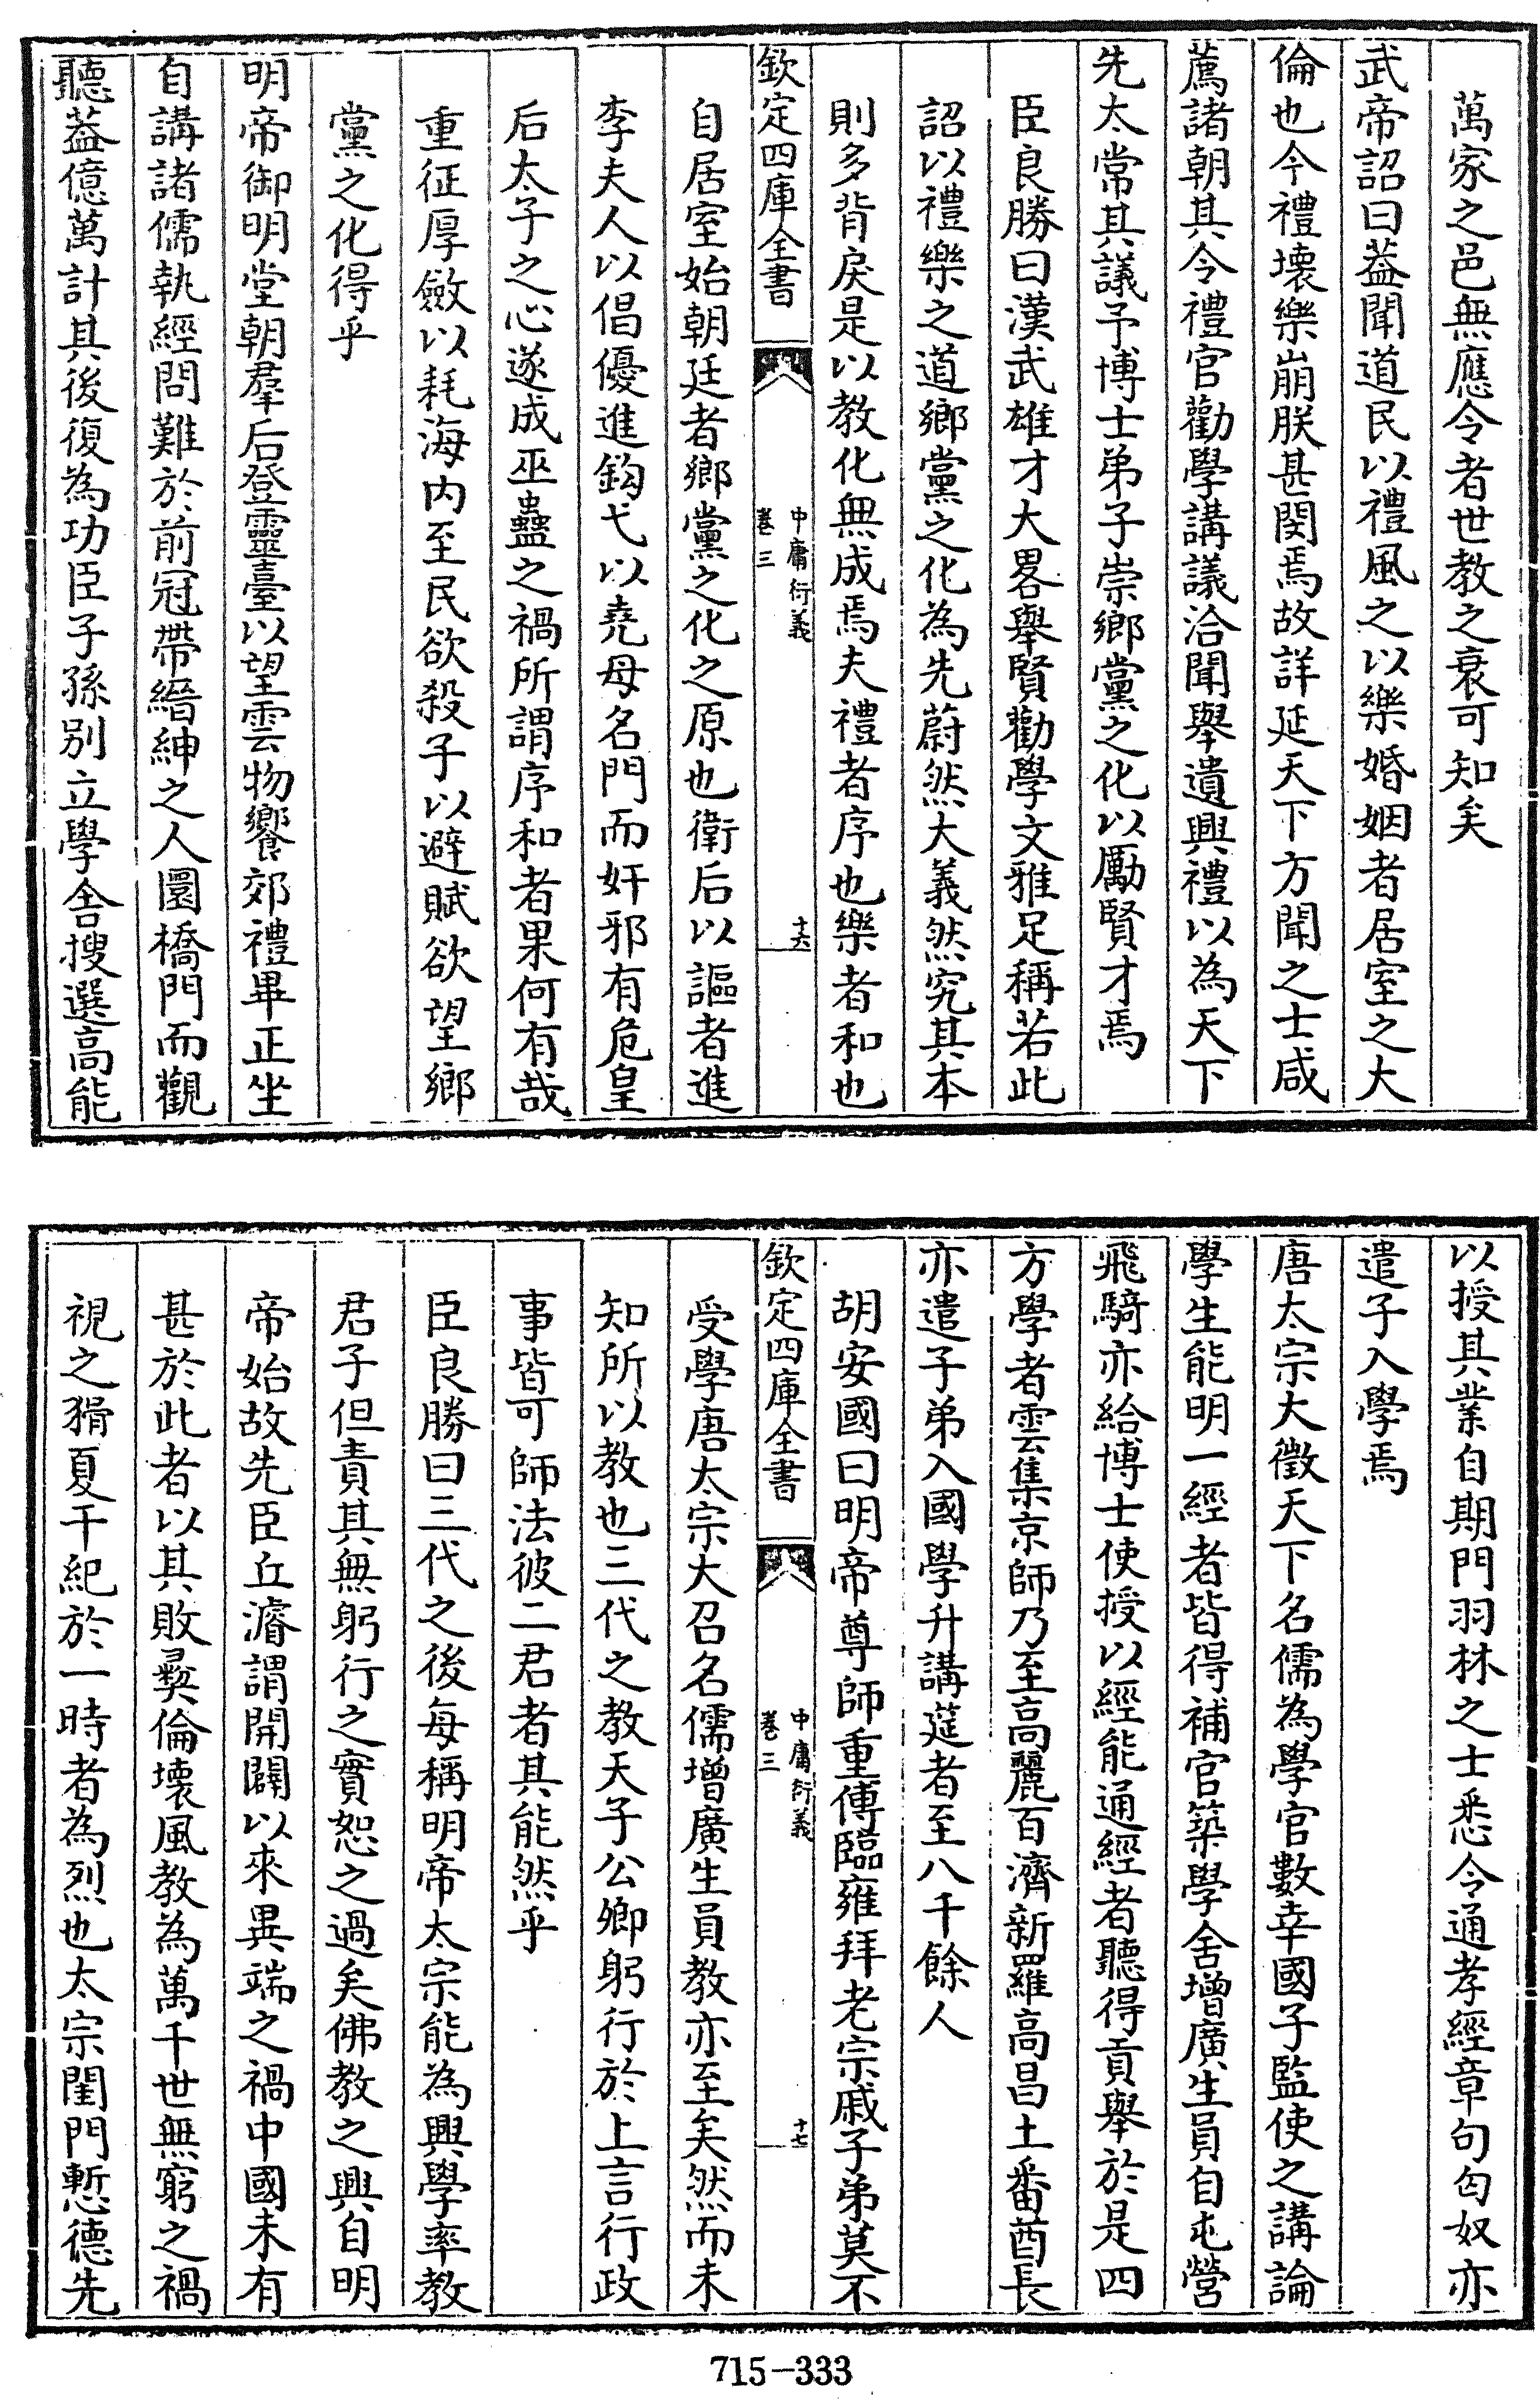 萬家之邑無應令者世教之衰可知矣
武帝詔曰葢聞道民以禮風之以樂婚姻者居室之大
倫也今禮壞樂崩朕甚閔焉故詳延天下方聞之士咸
薦諸朝其令禮官勸學講議洽聞舉遺興禮以為天下
先太常其議予博士弟子崇鄉黨之化以厲賢才焉
臣良勝曰漢武雄才大畧舉賢勸學文雅足稱若此
詔以禮樂之道鄉黨之化為先蔚然大義然究其本
則多背戾是以教化無成焉夫禮者序也樂者和也
欽定四庫全書
中庸衍義
卷三
十六
自居室始朝廷者鄉黨之化之原也衛后以謳者進
李夫人以倡優進鈎弋以堯母名門而奸邪有危皇
后太子之心遂成巫蠱之禍所謂序和者果何有哉
重征厚斂以耗海内至民欲殺子以避賦欲望鄉
黨之化得乎
明帝御明堂朝羣后登靈臺以望雲物饗郊禮畢正坐
自講諸儒執經問難於前冠帶縉紳之人圜橋門而觀
聽葢億萬計其後復為功臣子孫别立學舍搜選高能
以授其業自期門羽林之士悉令通孝經章句匈奴亦
遣子入學焉
唐太宗大徵天下名儒為學官數幸國子監使之講論
學生能明一經者皆得補官築學舍增廣生員自屯營
飛騎亦給博士使授以經能通經者聽得貢舉於是四
方學者雲集京師乃至高麗百濟新羅高昌土番酋長
亦遣子弟入國學升講莚者至八千餘人
胡安國曰明帝尊師重傅臨雍拜老宗戚子弟莫不
欽定四庫全書
中庸衍義
卷三
十七
受學唐太宗大召名儒增廣生員教亦至矣然而未
知所以教也三代之教天子公卿躬行於上言行政
事皆可師法彼二君者其能然乎
臣良勝曰三代之後每稱明帝太宗能為興學率教
君子但責其無躬行之實恕之過矣佛教之興自明
帝始故先臣丘濬謂開闢以來異端之禍中國未有
甚於此者以其敗彛倫壞風教為萬千世無窮之禍
視之猾夏干紀於一時者為烈也太宗閨門慙德先
715-333